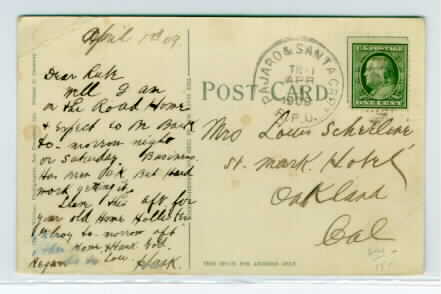 April 1st 09
Dear Rube
Well I am
on the Road Home
& Expect to be Back
to-morrow night
or Saturday. Business
Has been O.K. But Hard
work getting it.
Leave this aft for
your old Home Hollister
Gilroy to-morrow aft
Home Thank God.
Regan Lou.
Hank.
POST CARD
PAJARO & SANTA CRUZ
TR-1
APR
1
1909
R.P.O.
U.S. POSTAGE
ONE CENT
Mrs Louis Scheeline
St. Mark. Hotel
Oakland
Cal
THIS SPACE FOR ADDRESS ONLY